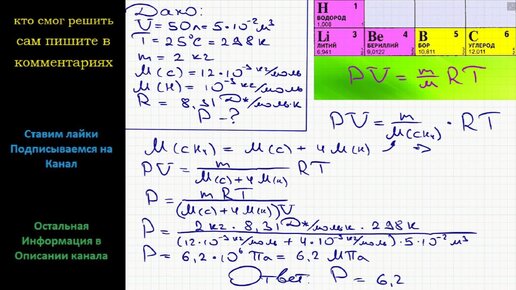 кто смог решить
сам пишите в
комментариях
Ставим лайки
Подписываемся на
Канал
Остальная
Информация в
Описании канала
Дано:
V = 50л = 5·10⁻² м³
T = 25°C = 298 К
m = 2 кг
M(C) = 12·10⁻³ кг/моль
M(H) = 10⁻³ кг/моль
R = 8,31 Дж/моль·К
P - ?
H 1
ВОДОРОД
1,008
Li 3
ЛИТИЙ
6,941
Be 4
БЕРИЛЛИЙ
9,0122
B 5
БОР
10,811
C 6
УГЛЕРОД
12,011
PV = m/M RT
PV = m/M(CH₄) · RT
M(CH₄) = M(C) + 4M(H)
PV = m/(M(C) + 4M(H)) RT
P = mRT/((M(C) + 4M(H))V)
P = 2 кг · 8,31 Дж/моль·К · 298 К/((12·10⁻³ кг/моль + 4·10⁻³ кг/моль)·5·10⁻² м³)
P = 6,2·10⁶ Па = 6,2 МПа
Ответ: P = 6,2